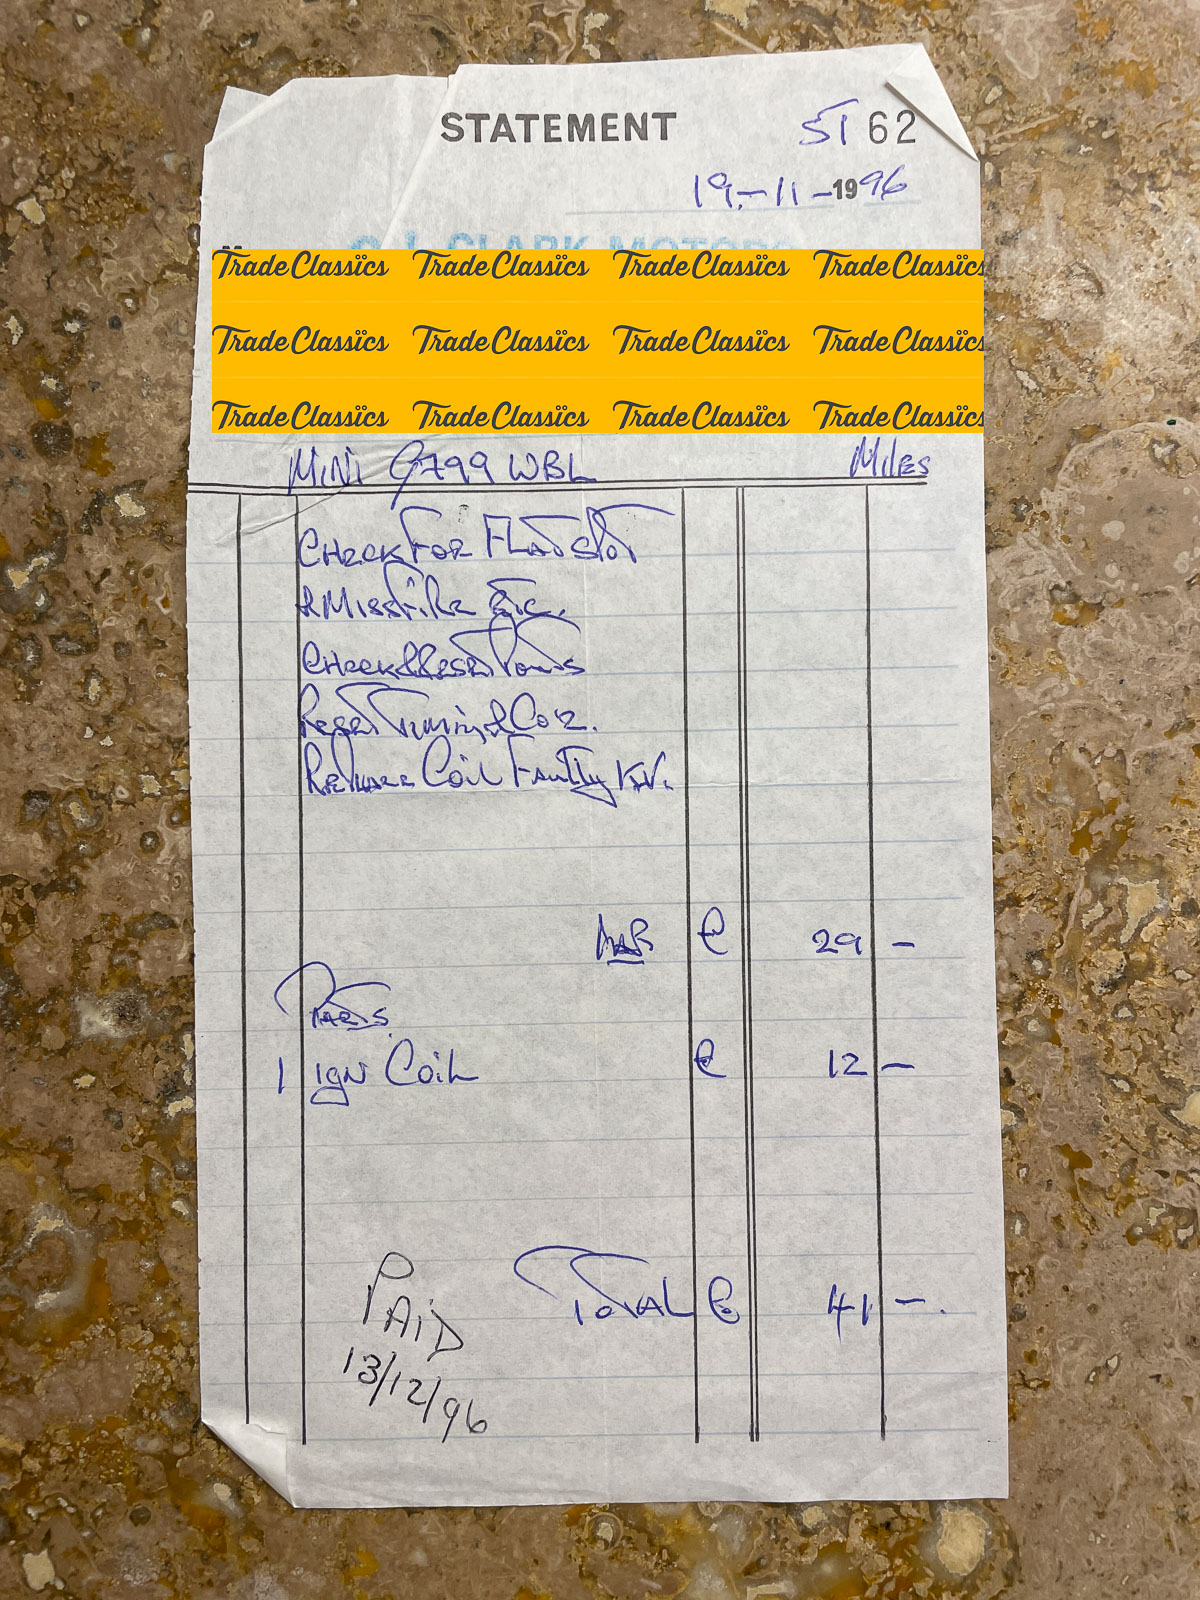 STATEMENT ST 62
19-11-1996
TradeClassics TradeClassics TradeClassics TradeClassics
TradeClassics TradeClassics TradeClassics TradeClassics
TradeClassics TradeClassics TradeClassics TradeClassics
MINI G799 WBL MILES
CHECK FOR FLAT SPOT
& MISSFIRE ETC.
CHECK & RESET POINTS
RESET TIMING & CO2.
REPLACE COIL FAULTY K.V.
LAB £ 29 -
PARTS
1 IGN COIL £ 12 -
TOTAL £ 41 -.
PAID
13/12/96